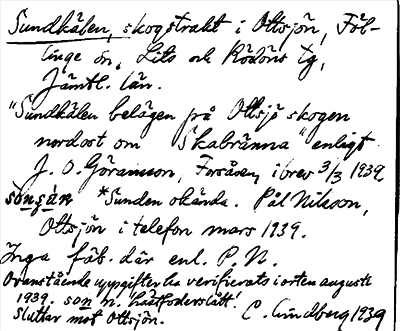 Sundkälen, skogstrakt i Ottsjön, Föl-
linge sn, Lits och Rödöns tg,
Jämtl. län.
"Sundkälen belägen på Ottsjö skogen
nordost om Skabränna" enligt
J. O. Göransson, Forsåsen, i brev 3/3 1939.
*Sunden okända. Pål Nilsson,
Ottsjön i telefon mars 1939.
Inga fäb. där enl. P. N.
Ovanstående uppgifter ha verifierats i orten augusti
1939. son n.
Sluttar mot Ottsjön. C. Lindberg 1939